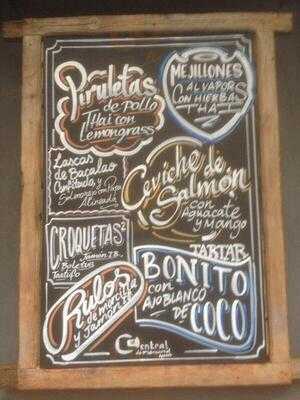 Piruletas
de pollo
thai con
Lemongrass
MEJILLONES
AL VAPOR
CON HIERBAS
THAI
Lascas
de Bacalao
Confitado, y
Salmorejo con Papa
Aliñada
Ceviche de
Salmón
con
Aguacate
y Mango
CROQUETAS
Jamón IB.
Boletus
TARTAR
BONITO
con
AJOBLANCO
DE
COCO
Rulos
de morcilla
y Jamón
Central